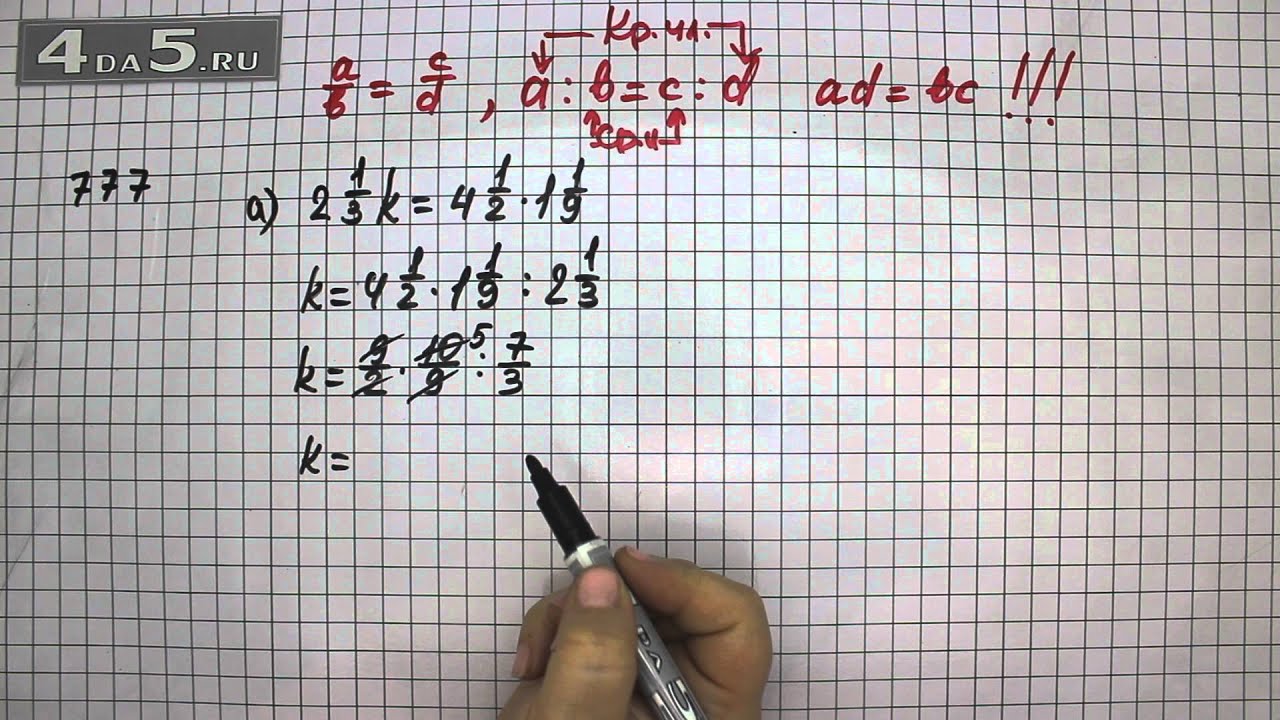 4DA5.RU
Кр. чл.
a/b = c/d , a : b = c : d ad = bc !!!
ср. ч
777 а) 2 1/3 k = 4 1/2 · 1 1/9
k = 4 1/2 · 1 1/9 : 2 1/3
k = 9/2 · 10/9 5 : 7/3
k =